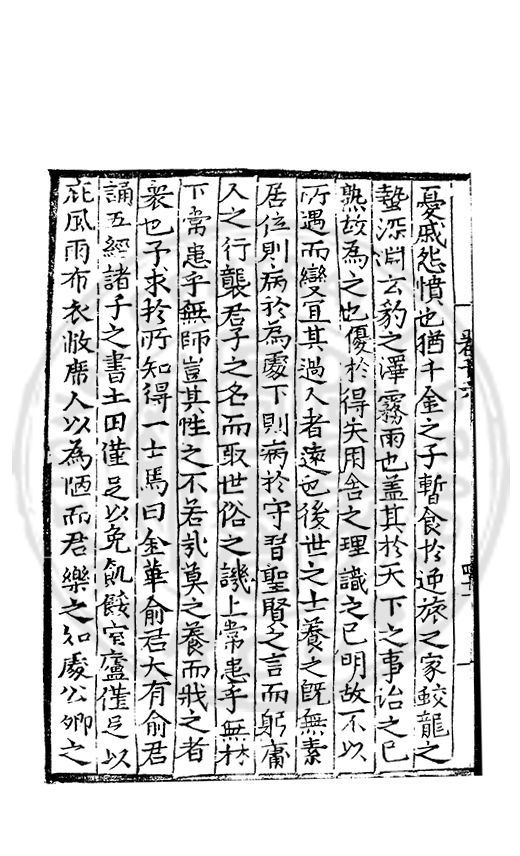 憂戚怨憤也猶千金之子暫食於逆旅之家蛟龍之
蟄深淵玄豹之澤霧雨也盖其於天下之事治之已
熟故為之也優於得失用舍之理識之已明故不以
所遇而變宜其過人者遠也後世之士養之既無素
居位則病於為處下則病於守習聖賢之言而躬庸
人之行襲君子之名而取世俗之譏上常患乎無材
下常患乎無師豈其性之不若㢤莫之養而戕之者
衆也予求於所知得一士焉曰金華俞君大有俞君
誦五經諸子之書土田僅足以免飢餒室廬僅足以
庇風雨布衣敝席人以為陋而君樂之如處公卿之